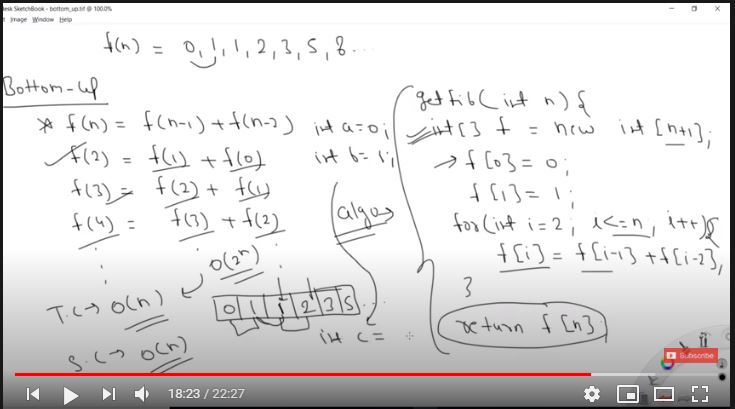 desk SketchBook - bottom_up.tif @ 100.0%
t Image Window Help
f(n) = 0, 1, 1, 2, 3, 5, 8...
Bottom-up
* f(n) = f(n-1) + f(n-2)
f(2) = f(1) + f(0)
f(3) = f(2) + f(1)
f(4) = f(3) + f(2)
O(2^n)
T.C → O(n)
S.C → O(n)
0 1 1 2 3 5 ...
int a=0;
int b=1;
algo
int c =
getfib(int n) {
int[] f = new int [n+1];
→ f[0] = 0;
f[1] = 1;
for(int i=2; i<=n, i++){
f[i] = f[i-1] + f[i-2],
}
return f[n];
Subscribe
18:23 / 22:27